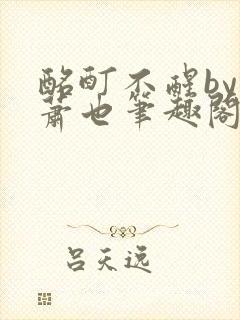 酩酊不醒by
萧也笔趣阁
吕天逸